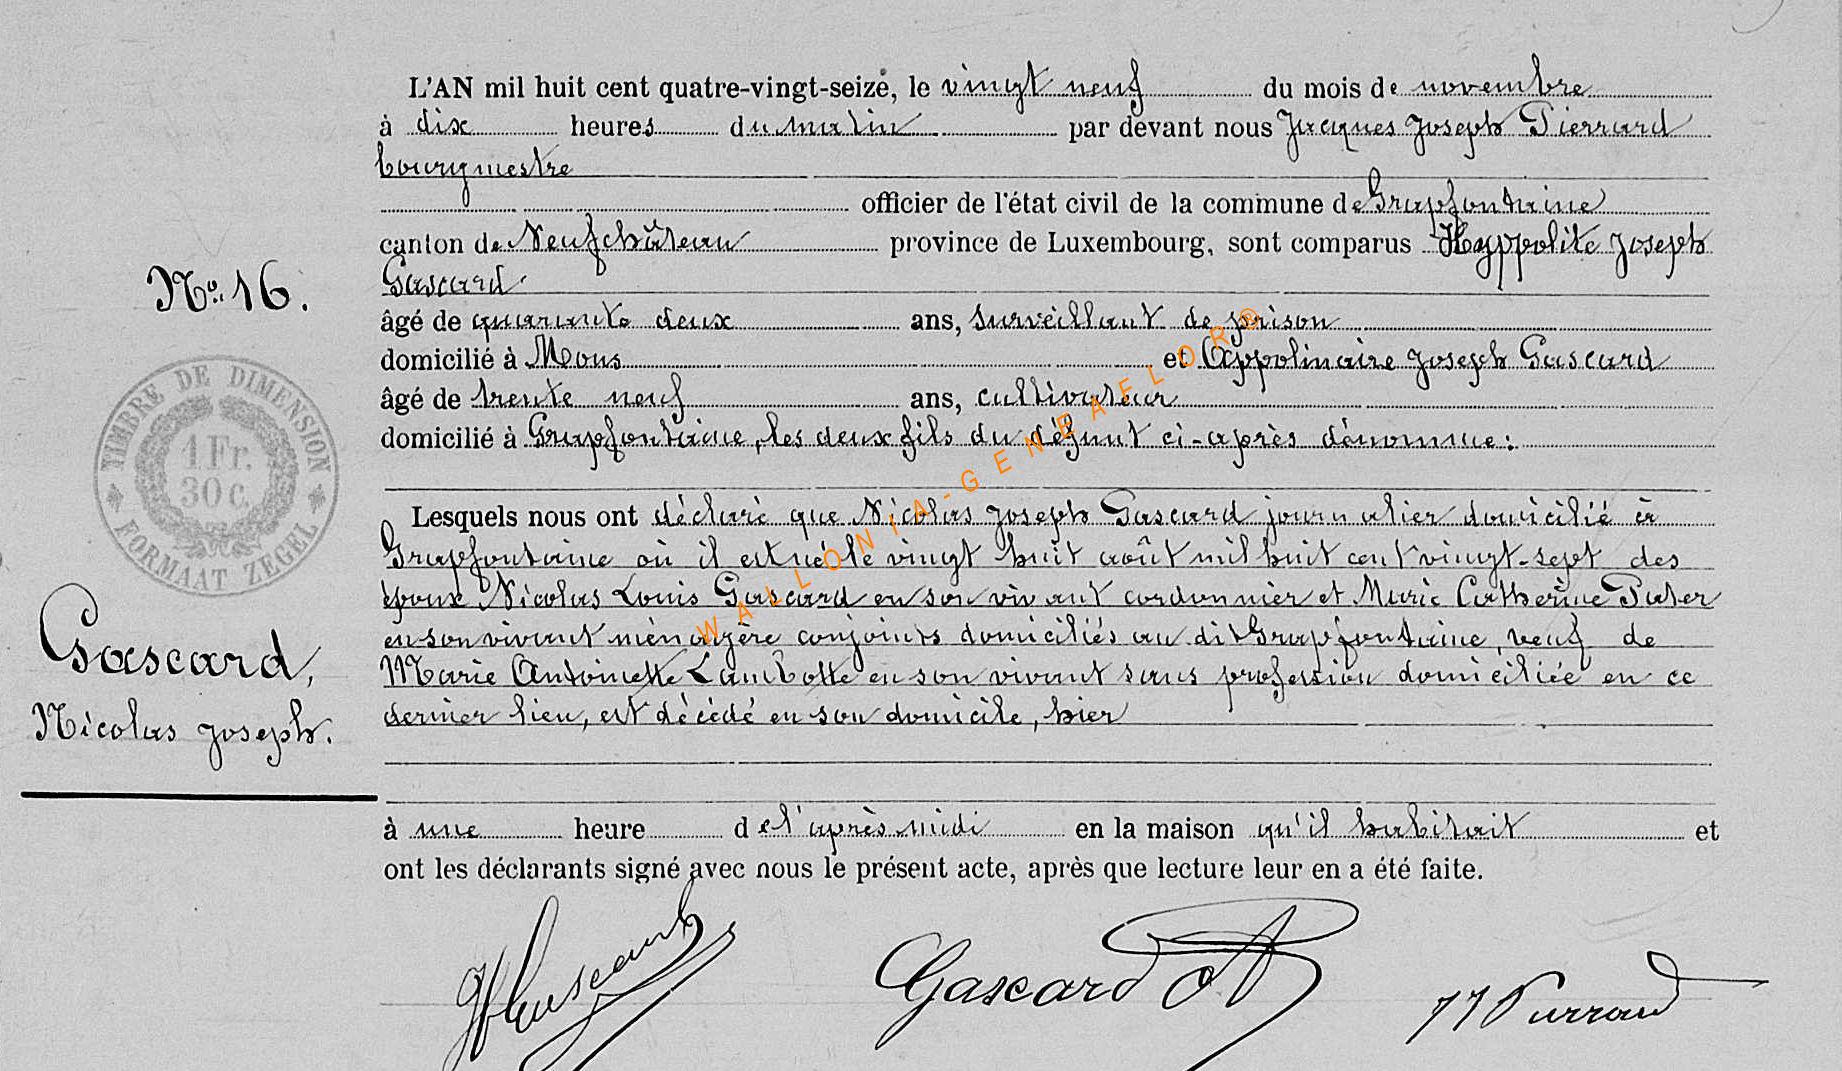 L'AN mil huit cent quatre-vingt-seize, le vingt neuf du mois de novembre
à dix heures du matin par devant nous Jacques Joseph Pierrard
bourgmestre
officier de l'état civil de la commune de Grapfontaine
canton de Neufchâteau province de Luxembourg, sont comparus Hyppolite Joseph
Gascard
No. 16.
âgé de quarante deux ans, surveillant de prison
domicilié à Mons et Appolinaire Joseph Gascard
âgé de trente neuf ans, cultivateur
domicilié à Grapfontaine, les deux fils du défunt ci-après dénommé:
TIMBRE DE DIMENSION
1 Fr.
30 c.
FORMAAT ZEGEL
WALLONIA-GENEAFLOR®
Lesquels nous ont déclaré que Nicolas Joseph Gascard journalier domicilié à
Grapfontaine où il est né le vingt huit août mil huit cent vingt-sept des
époux Nicolas Louis Gascard en son vivant cordonnier et Marie Catherine Pater
en son vivant ménagère conjoints domiciliés au dit Grapfontaine, veuf de
Marie Antoinette Lambotte en son vivant sans profession domiciliée en ce
dernier lieu, est décédé en son domicile, hier
Gascard,
Nicolas Joseph.
à une heure de l'après midi en la maison qu'il habitait et
ont les déclarants signé avec nous le présent acte, après que lecture leur en a été faite.
Gascard
JJ Pierrard